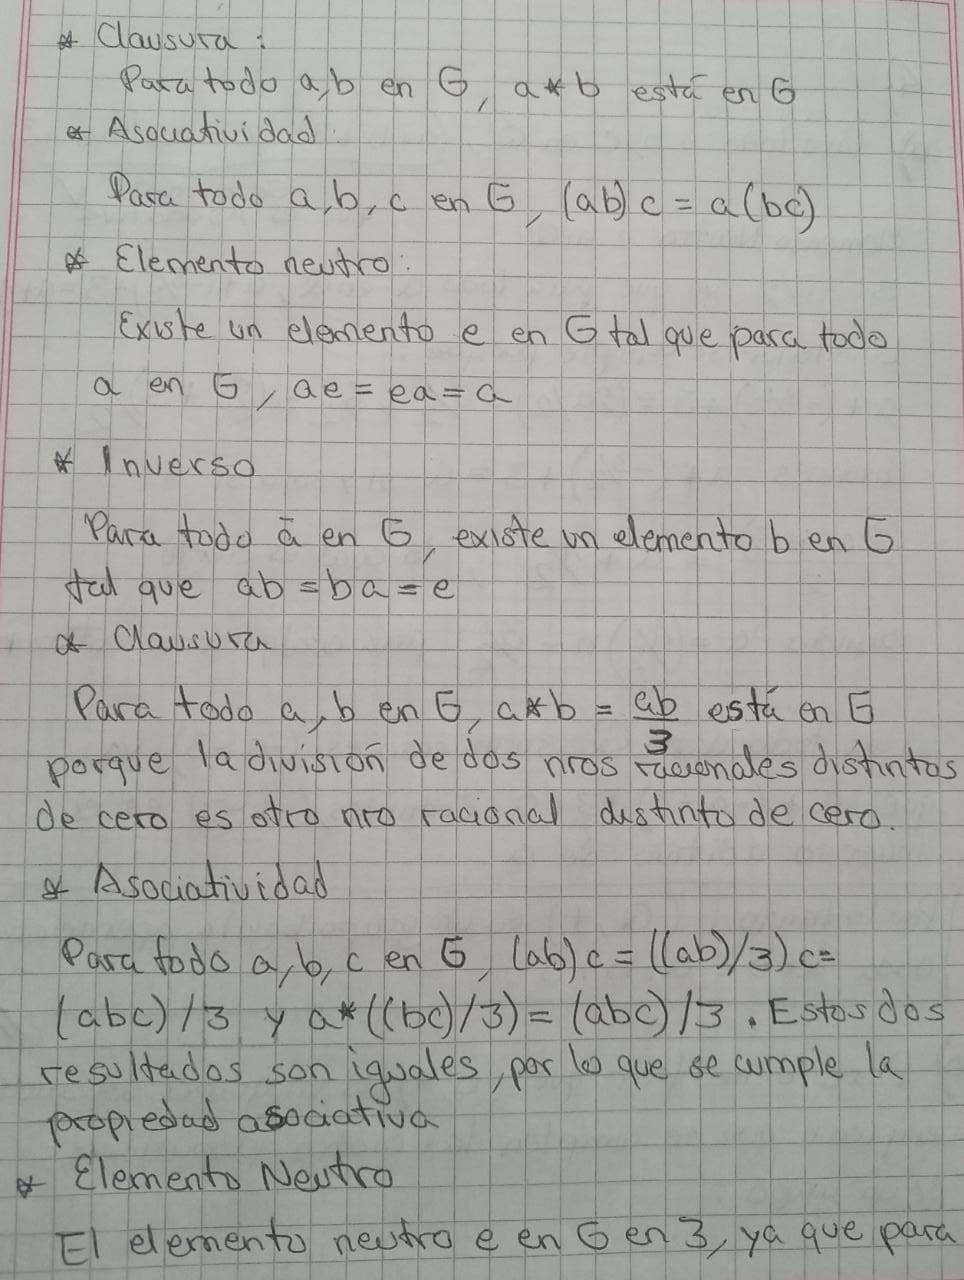 * Clausura :
Para todo a,b en G, a*b está en G
* Asociatividad:
Para todo a,b,c en G, (ab)c = a(bc)
* Elemento neutro:
Existe un elemento e en G tal que para todo
a en G, ae = ea = a
* Inverso
Para todo a en G, existe un elemento b en G
tal que ab = ba = e
* Clausura
Para todo a,b en G, a*b = ab/3 está en G
porque la división de dos nros racionales distintos
de cero es otro nro racional distinto de cero.
* Asociatividad
Para todo a,b,c en G, (ab)c = ((ab)/3)c =
(abc)/3 y a*((bc)/3) = (abc)/3. Estos dos
resultados son iguales, por lo que se cumple la
propiedad asociativa
* Elemento Neutro
El elemento neutro e en G en 3, ya que para